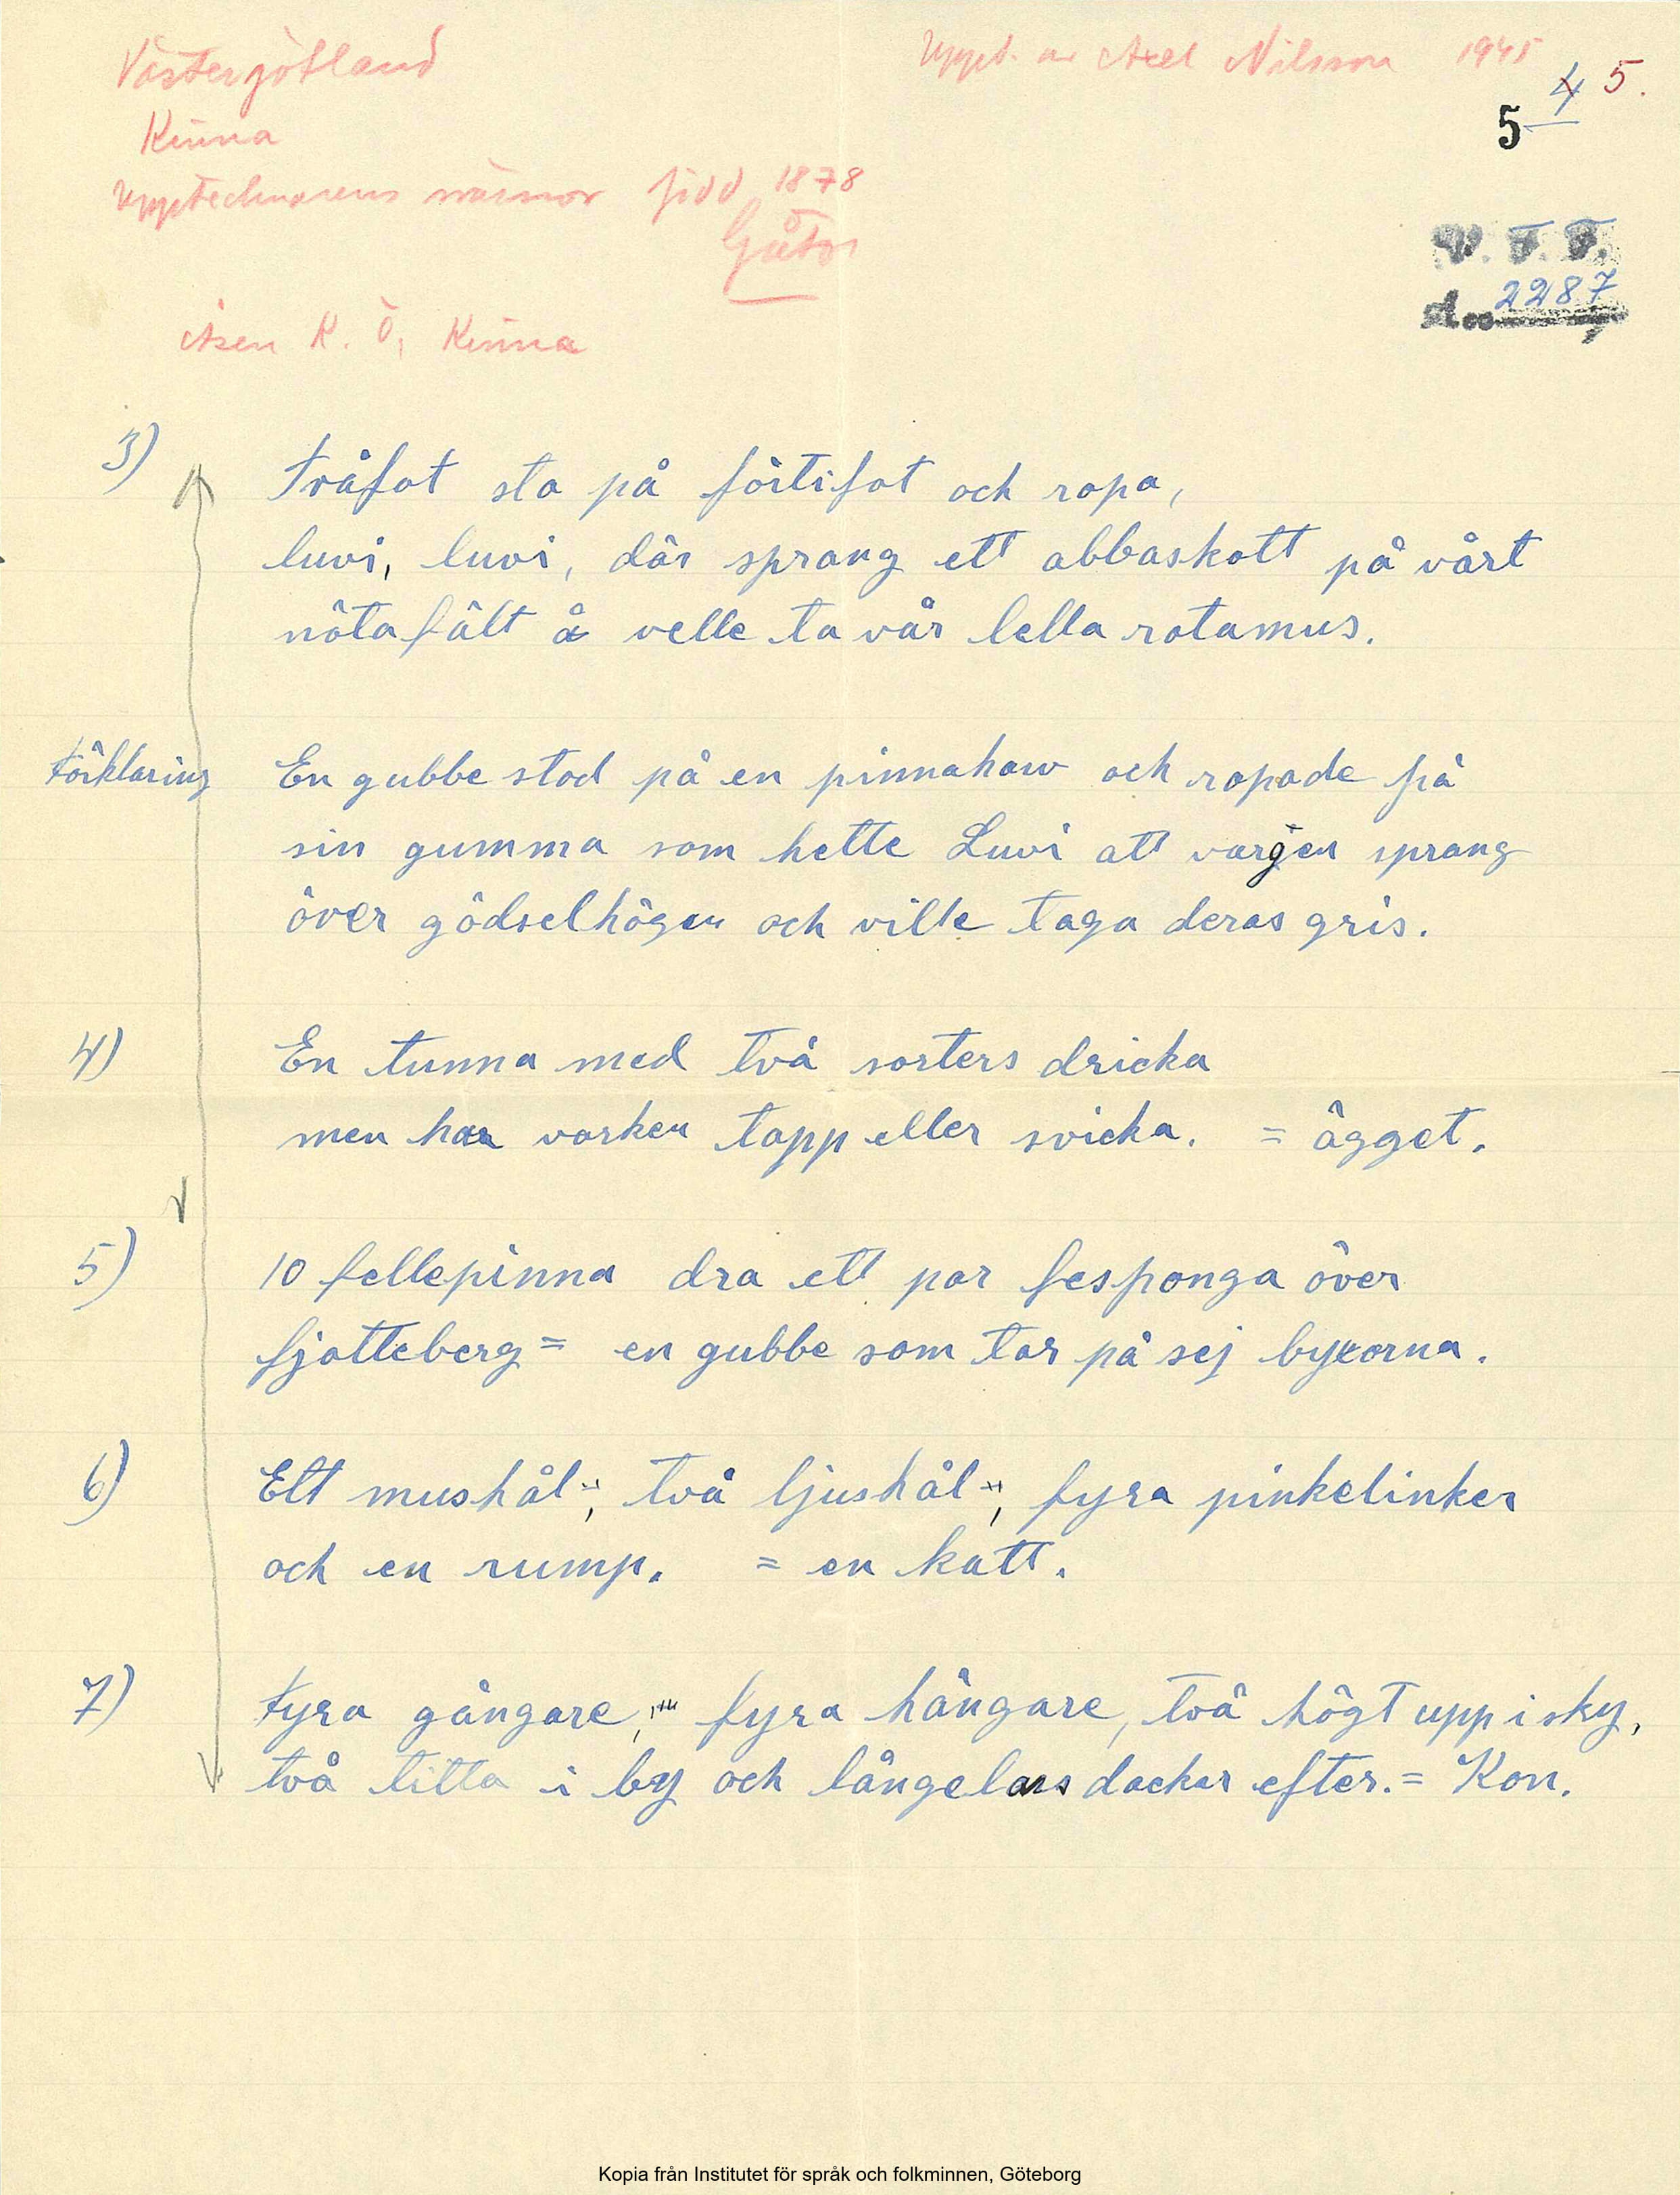 Västergötland
Uppt. av Axel Nilsson 1945
4 5.
5
Kinna
Upptecknarens mormor född 1878
Gåtor
V. F. F.
2287
K. Ö, Kinna
3) Tvåfot sto på förtifot och ropa,
luvi, luvi, där sprang ett abbaskott på vårt
nötafält å velle ta vår lella rotamus.
Förklaring En gubbe stod på en pinnahaw och ropade på
sin gumma som hette Luvi att vargen sprang
över gödselhögen och ville taga deras gris.
4) En tunna med två sorters dricka
men har varken tapp eller svicka. = ägget.
5) 10 fellepinna dra ett par fesponga över
fjatteberg = en gubbe som tar på sej byxorna.
6) Ett mushål, två ljushål, fyra pinkelinker
och en rump. = en katt.
7) Fyra gångare, fyra hängare, två högt upp i sky,
två titta i by och långelars dackar efter. = Kon.
Kopia från Institutet för språk och folkminnen, Göteborg